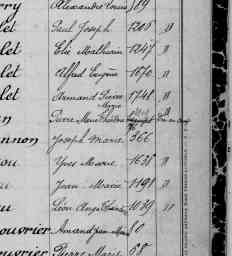 rry Alexandre Louis 89
let Paul Joseph 1206 "
let Elie Mathurin 1247 "
let Alfred Eugène 1670 "
let Armand Pierre Marie 1748 "
Pierre Marie
nnon Joseph Marie 366
ou Yves Marie 1638 "
u Jean Marie 1191 "
u Léon Ange 1039 "
ouvrier Amand Jean Marie 0
ouvrier Pierre Marie 68